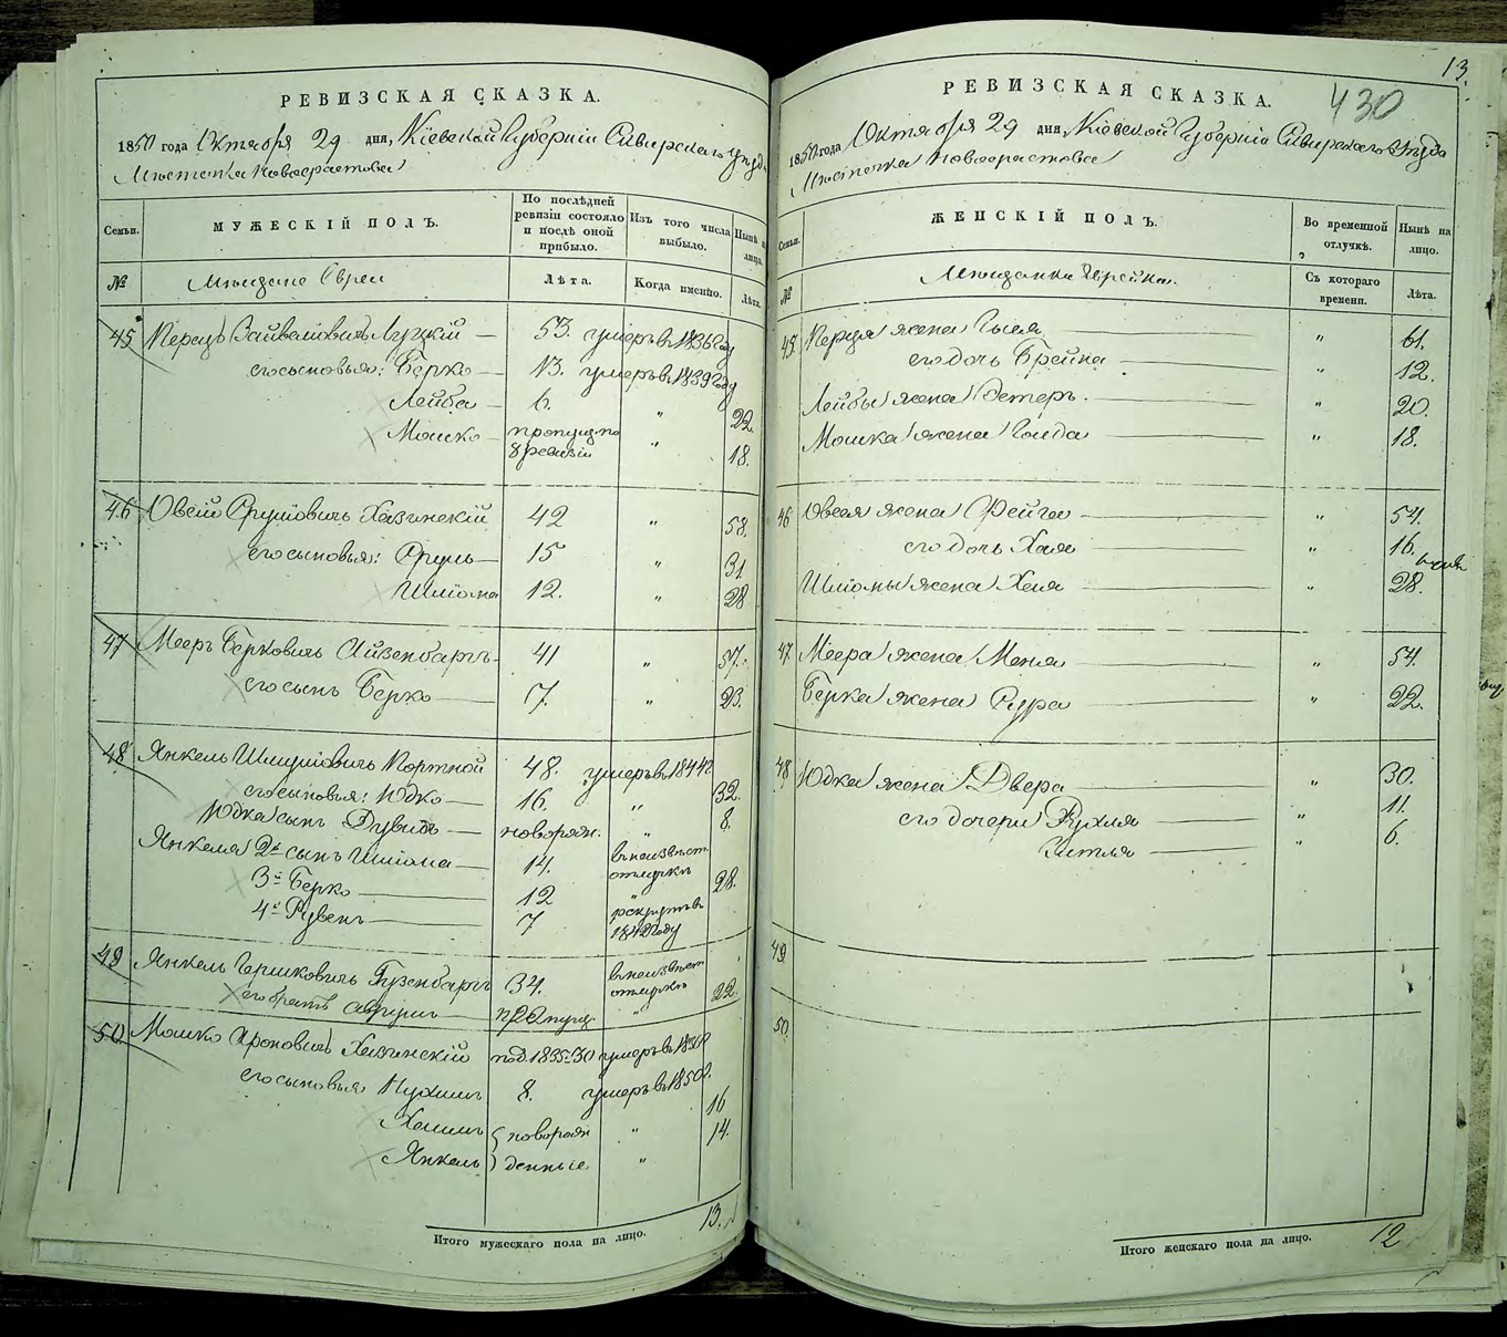 РЕВИЗСКАЯ СКАЗКА.
1850 года Октября 29 дня, Кіевской Губерніи Сквирскаго уѣзда
Мѣстечка Новофастова
Семьи.
МУЖЕСКІЙ ПОЛЪ.
По послѣдней ревизіи состояло и послѣ оной прибыло.
Изъ того числа выбыло.
Нынѣ на лицо.
№
Мѣщане Евреи
Лѣта.
Когда именно.
Лѣта.
45 Перецъ Луцкій 53. умеръ въ 1836 году
его сыновья: Берко 13. умеръ въ 1839 году
Лейба 6. " 22.
Мошко пропущ. по 8 ревизіи " 18.
46 Овсій Срулiовичъ Хазинскій 42 " 58.
его сыновья: Сруль 15 " 31
Шліома 12. " 28
47 Мееръ Берковичъ Айзенбаргъ 41 " 57.
его сынъ Берко 7. " 23.
48 Янкель Шмуліовичъ Портной 48. умеръ въ 1844
его сыновья: Юдко 16. " 32.
Юдка сынъ Дувидъ новорожд. " 8.
Янкеля 2й сынъ Шліома 14. въ неизвѣст. отлучкѣ
3й Берко 12 " 28.
4й Рувенъ 7 рекрутъ въ 1842 году
49 Янкель Гершковичъ Гузенбаргъ 34. въ неизвѣст. отлучкѣ
его братъ пропущ. " 22.
50 Мошко Ароновичъ Хазинскій под. 1835 - 30 умеръ въ
его сыновья Нухимъ 8. умеръ въ 1850 г.
Хаимъ новорож " 16
Янкель денные " 14.
Итого мужескаго пола на лицо. 13.
13.
430
РЕВИЗСКАЯ СКАЗКА.
1850 года Октября 29 дня, Кіевской Губерніи Сквирскаго уѣзда
Мѣстечка Новофастова
Семьи.
ЖЕНСКІЙ ПОЛЪ.
Во временной отлучкѣ.
Нынѣ на лицо.
№
Мѣщанки Еврейки.
Съ котораго времени.
Лѣта.
45 Перца жена " 61.
его дочь Брейна " 12.
Лейбы жена Эстеръ. " 20.
Мошка жена Голда " 18.
46 Овсея жена Фейга " 54.
его дочь Хая " 16.
Шліомы жена Хеня " 28.
47 Меера жена Меня " 54.
Берка жена Сура " 22.
48 Юдка жена Двера " 30.
его дочери Рухля " 11.
Зитля " 6.
49
50.
Итого женскаго пола на лицо. 12